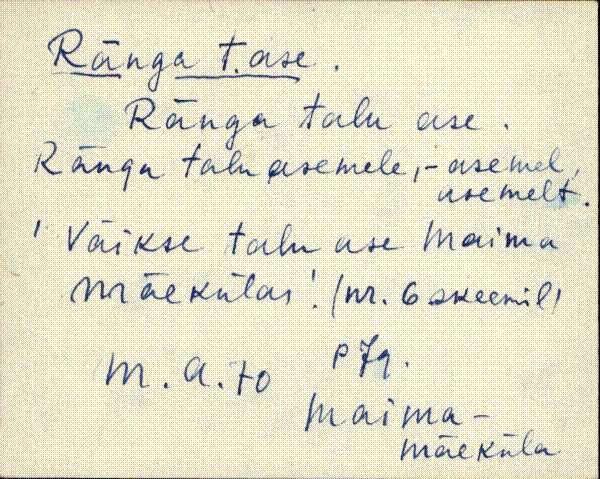 Ränga t. ase.
Ränga talu ase.
Ränga talu asemele, - asemel,
asemelt.
' Väikse talu ase Maima
Mäekülas'. (nr. 6 skeemil)
P79.
Maima-
mäeküla